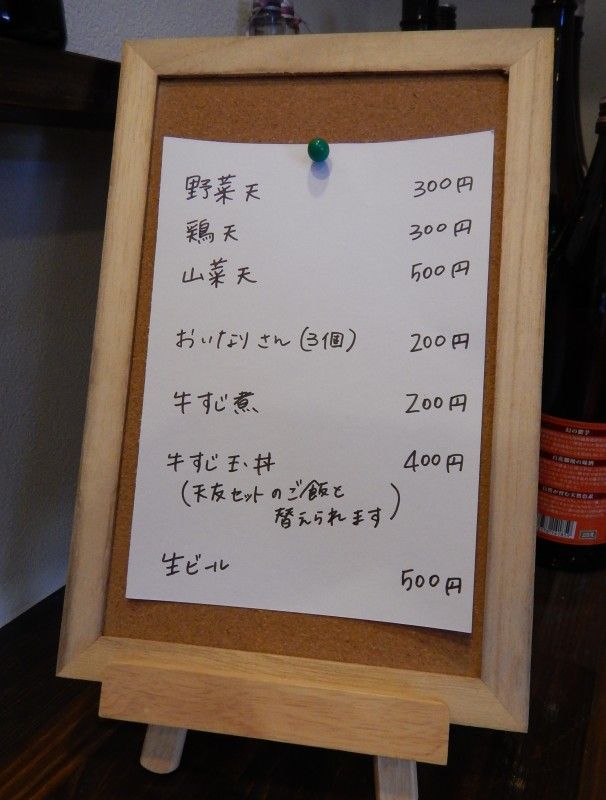 野菜天 300円
鶏天 300円
山菜天 500円
おいなりさん(3個) 200円
牛すじ煮 200円
牛すじ玉丼 400円
(天友セットのご飯と
替えられます)
生ビール 500円